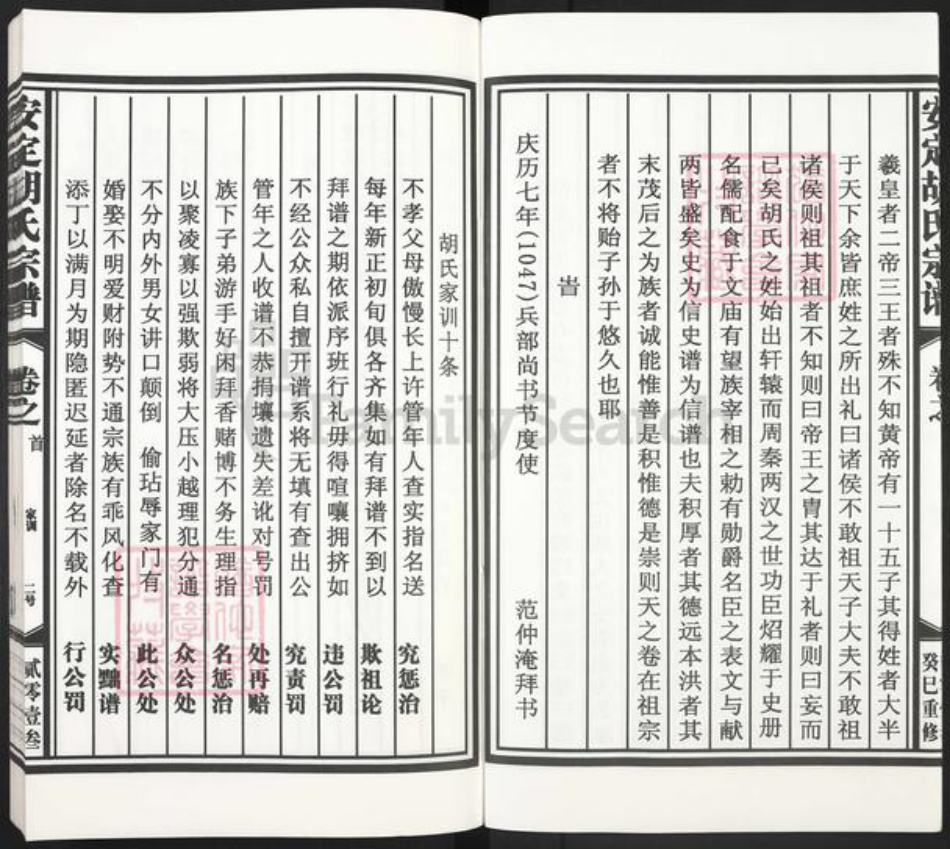 安定胡氏宗谱
卷之
癸巳重修
羲皇者二帝三王者殊不知黄帝有一十五子其得姓者大半
于天下余皆庶姓之所出礼曰诸侯不敢祖天子大夫不敢祖
诸侯则祖其祖者不知则曰帝王之胄其达于礼者则曰妄而
已矣胡氏之姓始出轩辕而周秦两汉之世功臣炤耀于史册
名儒配食于文庙有望族宰相之勅有勋爵名臣之表文与献
两皆盛矣史为信史谱为信谱也夫积厚者其德远本洪者其
末茂后之为族者诚能惟善是积惟德是崇则天之卷在祖宗
者不将贻子孙于悠久也耶
旹
庆历七年(1047)兵部尚书节度使 范仲淹拜书
胡氏家训十条
不孝父母傲慢长上许管年人查实指名送 究惩治
每年新正初旬俱各齐集如有拜谱不到以 欺祖论
拜谱之期依派序班行礼毋得喧嚷拥挤如 违公罚
不经公众私自擅开谱系将无填有查出公 究责罚
管年之人收谱不恭捐壤遗失差讹对号罚 处再赔
族下子弟游手好闲拜香赌博不务生理指 名惩治
以聚凌寡以强欺弱将大压小越理犯分通 众公处
不分内外男女讲口颠倒 偷玷辱家门有 此公处
婚娶不明爱财附势不通宗族有乖风化查 实黜谱
添丁以满月为期隐匿迟延者除名不载外 行公罚
安定胡氏宗谱
卷之首
家训
二号
贰零壹叁
FamilySearch